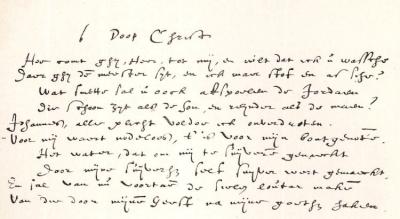 6 Doop Christi
Hoe comt ghy, Heer, tot mij, en wilt dat ick u wassche
Daer ghy de meester zyt, en ick maer stof en as
Wat smette sal u oock afspoelen de Jordaen
Die schoon zyt als de son, en reynder als de maen?
Johannes, alle plicht voldoe ick onverdroten.
Voor mij waert nodeloos, t'is voor mijn bontgenoten.
Het water, dat om mij te suyveren gemaeckt
Door mijne suyverheyt self suyver wert gemaeckt
En sal van nu voortaen de siele louter maken
Van die door mijnen Geest na mijne